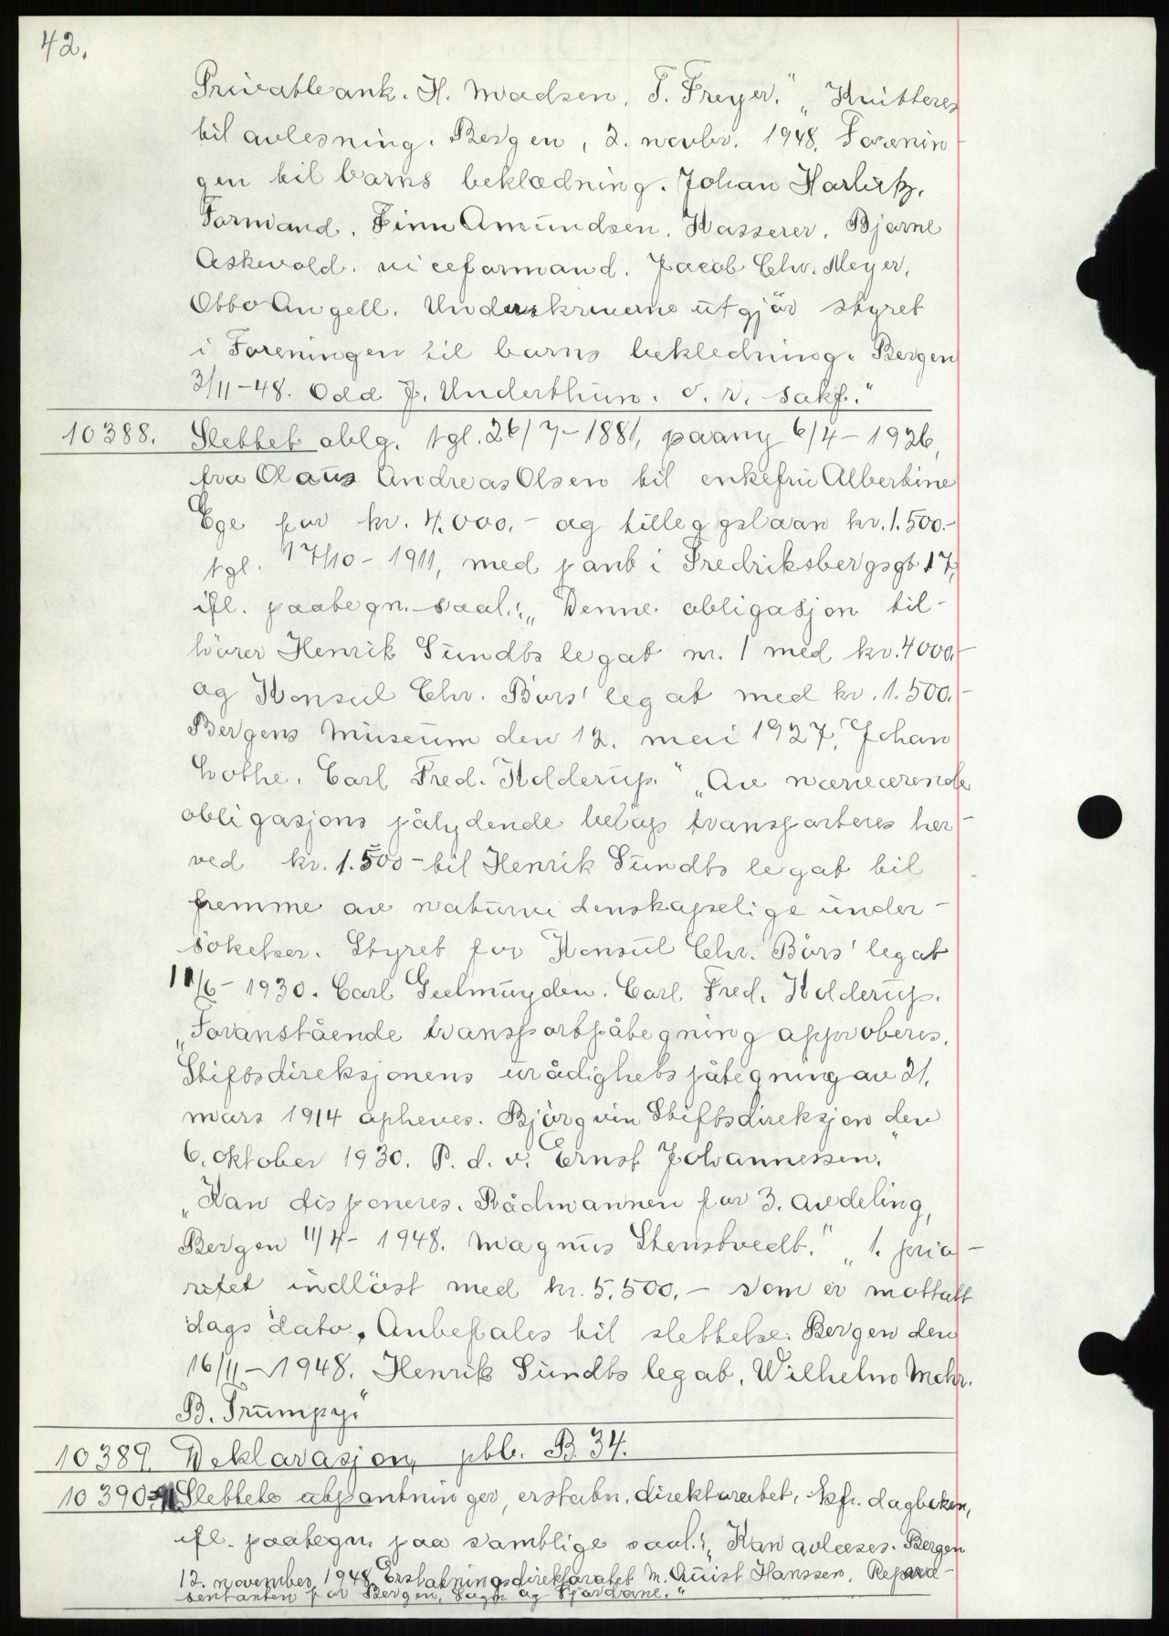 42.
Privatbank. H. Madsen. T. Freyer." „Kvitteres
til avlesning. Bergen, 2. novbr. 1948. Forenin-
gen til barns beklædning. Johan
Formand. Finn Amundsen. Kasserer. Bjarne
Askevold. viceformand. Jacob Chr. Meyer.
Otto Angell. Underskriverne utgjör styret
i Foreningen til barns bekledning. Bergen
3/11-48. Odd J. Underthun. o. r. sakf."
10388. Slettet oblg. tgl. 26/7-1881, paany 6/4-1926,
fra Olaus Andreas Olsen til enkefru Albertine
Ege for kr. 4.000.- og tilleggslaan kr. 1.500.-
tgl. 17/10-1911, med pant i Fredriksbergsgt 17,
ifl. paategn. saal.: „Denne obligasjon til-
hörer Henrik Sundts legat nr. 1 med kr. 4000.-
og Konsul Chr. Börs' legat med kr. 1.500.-
Bergens Museum den 12. mai 1927. Johan
Lothe. Carl Fred. Kolderup." „Av nærværende
obligasjons pålydende belöp transporteres her-
ved kr. 1.500- til Henrik Sundts legat til
fremme av naturvidenskapelige under-
sökelser. Styret for Konsul Chr. Börs' legat
11/6-1930. Carl Geelmuyden. Carl. Fred. Kolderup.
„Foranstående transportpåtegning approberes.
Stiftsdireksjonens urådighetspåtegning av 21.
mars 1914 opheves. Björgvin Stiftsdireksjon den
6. oktober 1930. P. d. v. Ernst Johannessen."
„Kan disponeres. Rådmannen for 3. avdeling,
Bergen 11/4-1948. Magnus Stenstvedt." „1. prio-
ritet indlöst med kr. 5.500.- som er mottatt
dags dato. Anbefales til slettelse. Bergen den
16/11-1948. Henrik Sundts legat. Wilhelm Mohr.
B. Trumpy."
10389. Deklarasjon, pbb. B. 34.
10390-91 Slettete utpantninger, erstatn. direktoratet, kfr. dagboken,
ifl. paategn. paa samtlige saal.: „Kan avlæses. Bergen
12. november 1948 Erstatningsdirektoratet M. Quist Hanssen. Repræ-
sentanten for Bergen, Sogn og Fjordane."